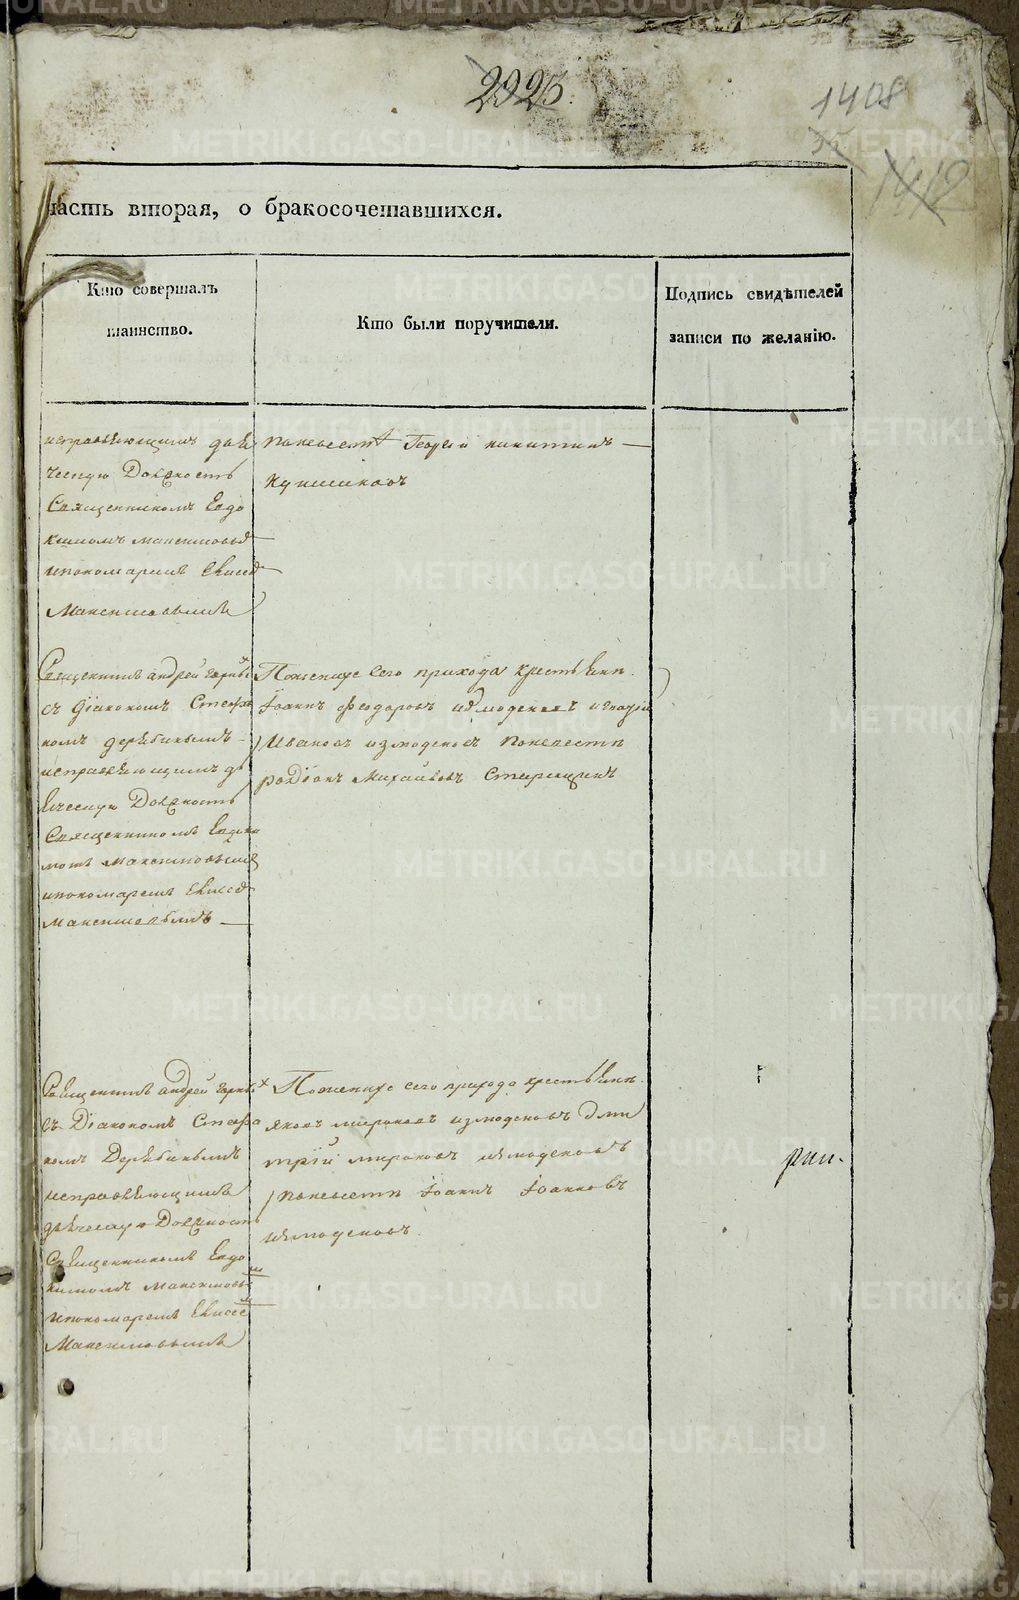 2925.
1408
35
1412
часть вторая, о бракосочетавшихся.
Кто совершалъ
таинство.
Кто были поручители.
Подпись свидѣтелей
записи по желанію.
исправляющимъ дья
ческую Должность
Священникомъ Евдо
кимомъ Максимовы
ипономаремъ Елисе
Максимовымъ
поневесте Георгій никитинъ
Кунщиковъ
Священникъ андрей
съ Діакономъ Стефа
номъ дерябинымъ
исправляющимъ дь
яческую Должность
Священникомъ Евдоки
момъ Максимовымъ
ипономаремъ Елисе
Максимовымъ
Пожених Сего прихода Крестьяни
Іоаннъ Феодоровъ измоденовъ
Ивановъ измоденовъ поневесте
родіонъ Михайловъ Старицинъ
Священникъ андрей
съ Діакономъ Стефа
номъ Дерябинымъ
исправляющимъ
дьяческую Должность
Священникомъ Евдо
кимомъ Максимовы
ипономаремъ Елисее
Максимовымъ
Пожених сего прихода крестьяни
яковъ мироновъ измоденовъ Дми
трій мироновъ измоденовъ
поневесте Іоаннъ Іоанновъ
измоденовъ.
METRIKI.GASO-URAL.RU